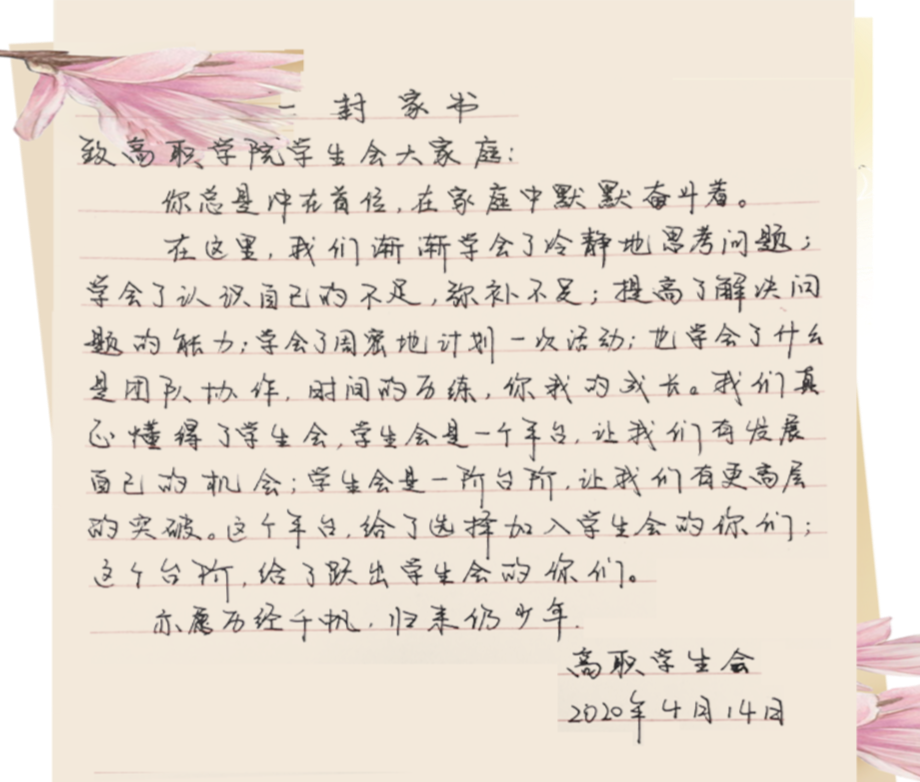 一封家书
致高职学院学生会大家庭:
你总是冲在首位,在家庭中默默奋斗着。
在这里,我们渐渐学会了冷静地思考问题;
学会了认识自己的不足,弥补不足;提高了解决问
题的能力;学会了周密地计划一次活动;也学会了什么
是团队协作,时间的历练,你我的成长。我们真
正懂得了学生会,学生会是一个平台,让我们有发展
自己的机会;学生会是一阶台阶,让我们有更高层
的突破。这个平台,给了选择加入学生会的你们;
这个台阶,给了跃出学生会的你们。
亦愿历经千帆,归来仍少年.
高职学生会
2020年4月14日